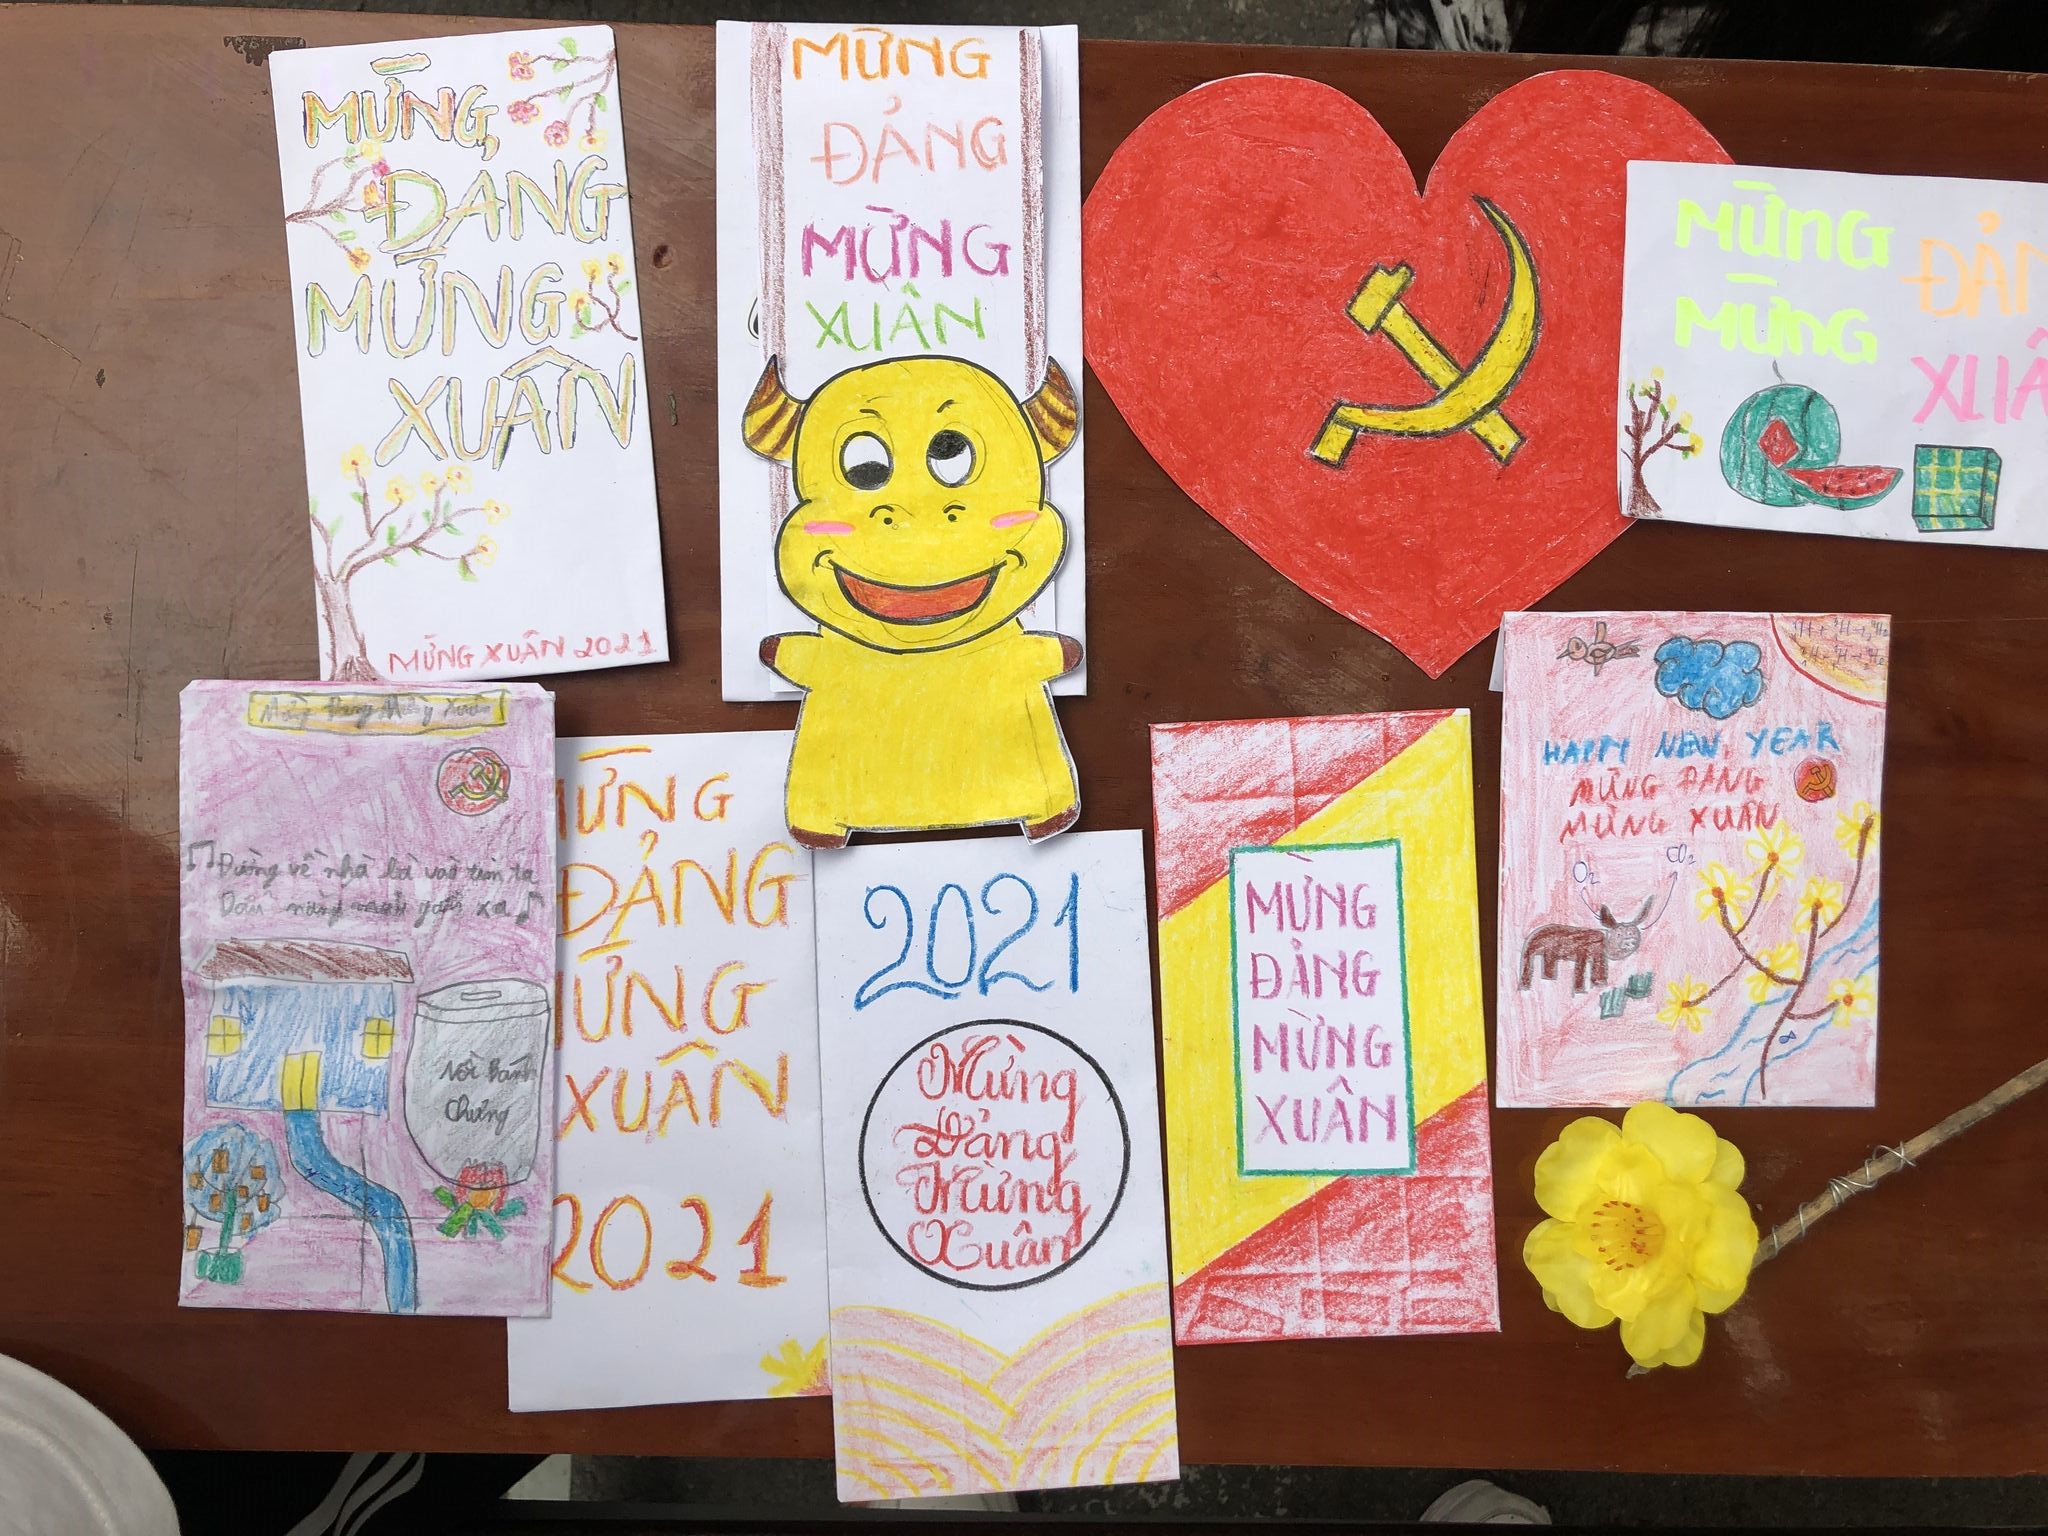 MỪNG
ĐẢNG
MỪNG
XUÂN
MỪNG XUÂN 2021
MỪNG
ĐẢNG
MỪNG
XUÂN
MỪNG ĐẢN
MỪNG XUÂ
Mừng Đảng Mừng Xuân
Đường về nhà là vào tim ta
Dẫu nắng mưa gần xa
Nồi Bánh
Chưng
MỪNG
ĐẢNG
MỪNG
XUÂN
2021
2021
Mừng
Đảng
Mừng
Xuân
MỪNG
ĐẢNG
MỪNG
XUÂN
HAPPY NEW YEAR
MỪNG ĐẢNG
MỪNG XUÂN
O2
CO2